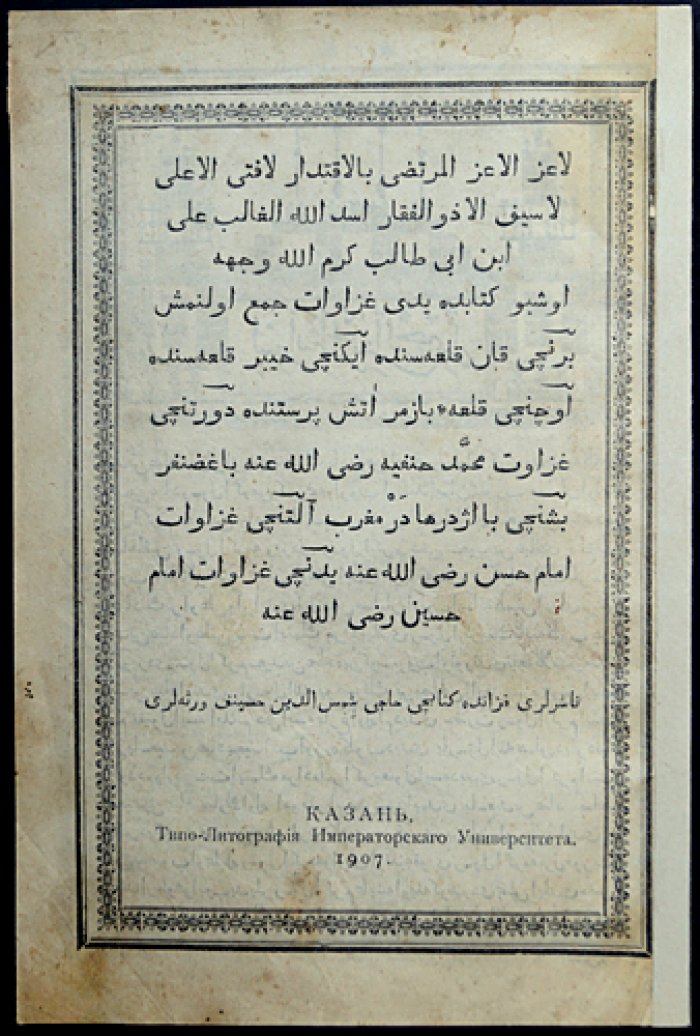 لاعز الاعز المرتضى بالاقتدار لافتى الاعلى
لاسيف الاذوالفقار اسد الله الغالب على
ابن ابى طالب كرم الله وجهه
اوشبو كتابده يدى غزاوات جمع اولنمش
برنچى قان قلعه‌سنده ايكنچى خيبر قلعه‌سنده
اوچنچى قلعهٴ بازمر اٰتش پرستنده دورتنچى
غزاوت محمَّد حنفيه رضى الله عنه باغضنفر
بشنچى با اژدرها دَرْ مغرب آلتنچى غزاوات
امام حسن رضى الله عنه يدنچى غزاوات امام
حسين رضى الله عنه
ناشرلرى قزانده كتابچى حاجى شمس الدين حسينف ورثه‌لرى
КАЗАНЬ.
Типо-Литографія Императорскаго Университета.
1907.